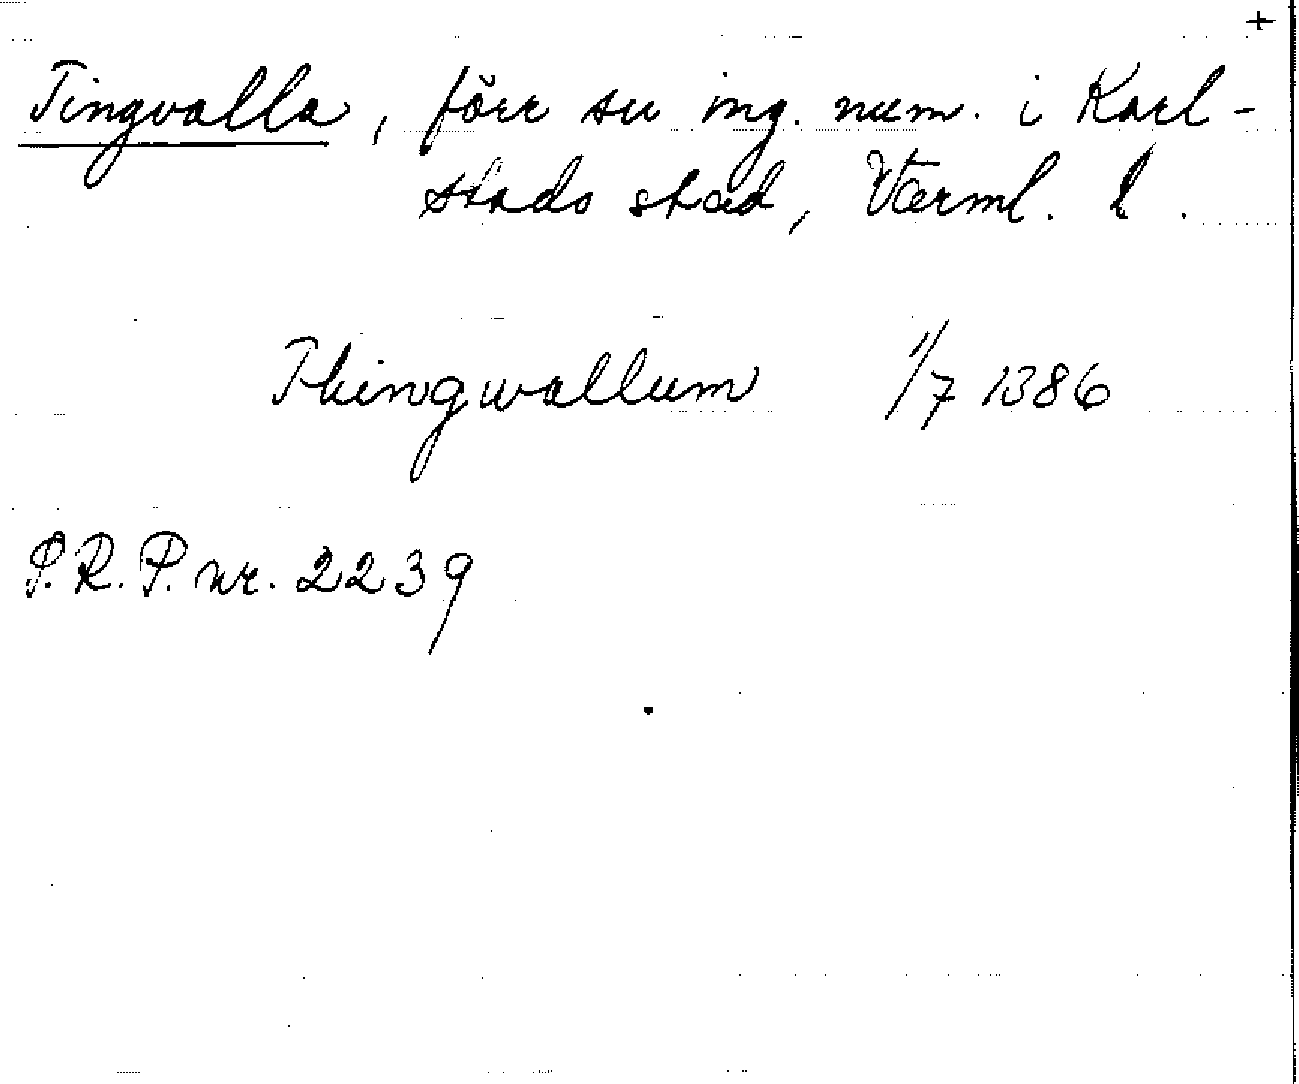 +
Tingvalla, förr su ing. num. i Karl-
stads stad, Värml. l.
Thingwallum 1/7 1386
P.R.P. nr. 2239